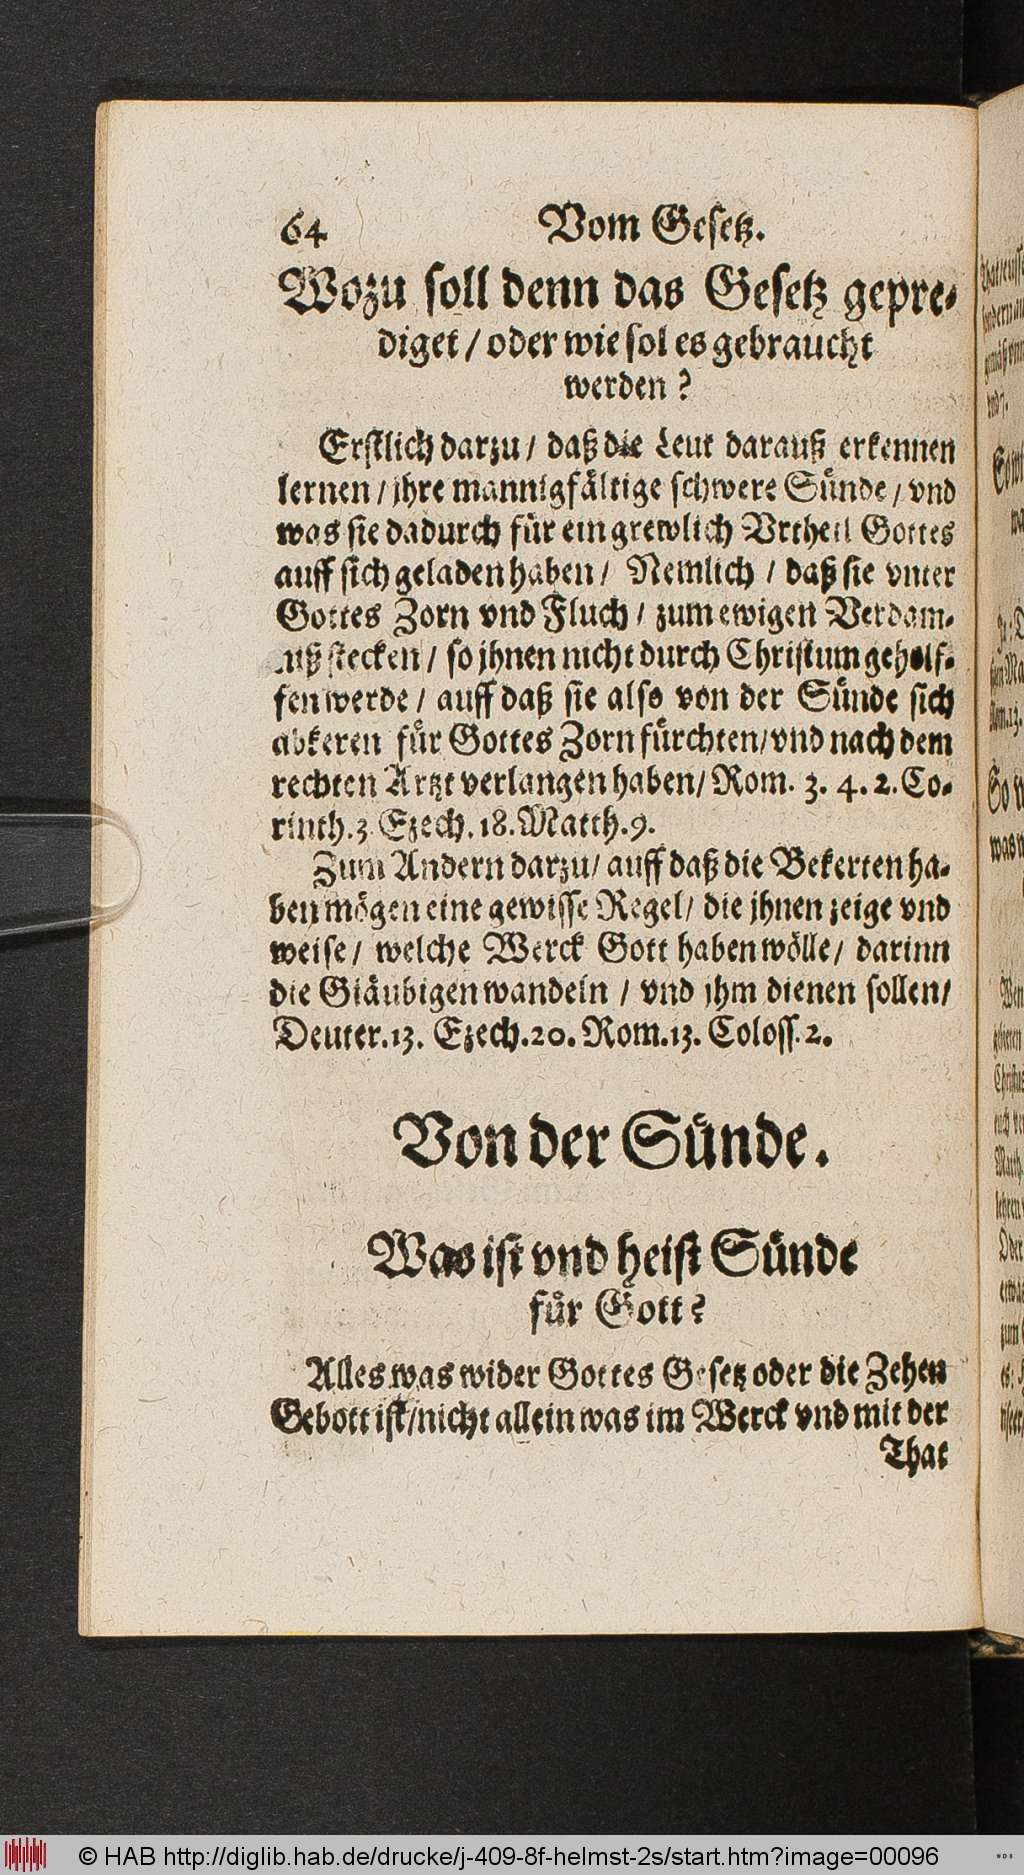 64 Vom Gesetz.
Wozu soll denn das Gesetz gepre-
diget / oder wie sol es gebraucht
werden ?
Erstlich darzu / daß die Leut darauß erkennen
lernen / jhre mannigfältige schwere Sünde / vnd
was sie dadurch für ein grewlich Vrtheil Gottes
auff sich geladen haben / Nemlich / daß sie vnter
Gottes Zorn vnd Fluch / zum ewigen Verdam-
nuß stecken / so jhnen nicht durch Christum geholf-
fen werde / auff daß sie also von der Sünde sich
abkeren für Gottes Zorn fürchten/ vnd nach dem
rechten Artzt verlangen haben/ Rom. 3. 4. 2. Co-
rinth. 3 Ezech. 18. Matth. 9.
Zum Andern darzu/ auff daß die Bekerten ha-
ben mögen eine gewisse Regel/ die jhnen zeige vnd
weise/ welche Werck Gott haben wölle/ darinn
die Gläubigen wandeln / vnd jhm dienen sollen/
Deuter. 13. Ezech. 20. Rom. 13. Coloss. 2.
Von der Sünde.
Was ist vnd heist Sünde
für Gott?
Alles was wider Gottes Gesetz oder die Zehen
Gebott ist/ nicht allein was im Werck vnd mit der
That
© HAB http://diglib.hab.de/drucke/j-409-8f-helmst-2s/start.htm?image=00096